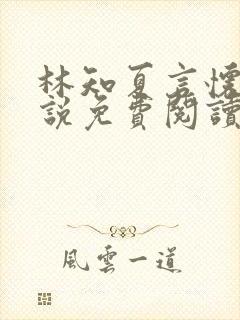 林知夏言懷
說免費閱讀
風雲一道